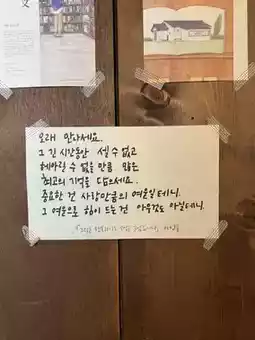 오래 만나세요.
그 긴 시간동안 셀 수 없고
헤아릴 수 없을 만큼 많은
최고의 기억을 담으세요.
중요한 건 사랑만큼의 여운일테니.
그 여운으로 힘이 드는 건 아무것도 아닐테니.